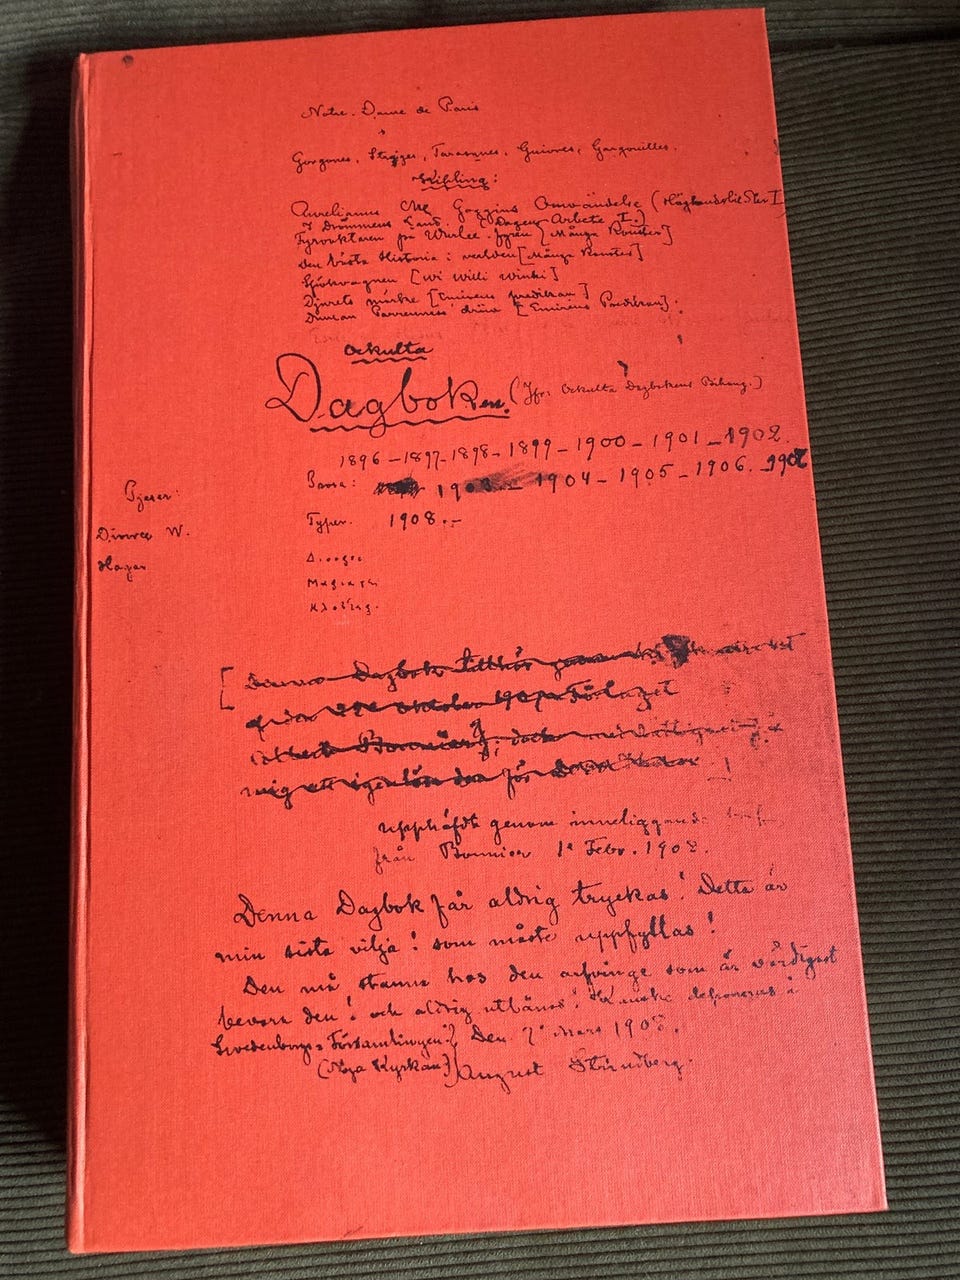 Notre-Dame de Paris
Gorgones, Stryges, Tarasques, Guivres, Gargouilles.
Kipling:
Aurelianus Mc Goggins Omvändelse (Höglandslif Ser I
I Drömmens Land. (Dagens Arbete I.)
Fyrvaktaren på Wurlee-fyren [Många Konster]
Den bästa Historia i verlden [Många Konster]
Spökvagnen [Wi Willi Winki]
Djurets märke [Emirens predikan]
Duncan Parrenness' dröm [Emirens Predikan].
Ockulta
Dagboken. (Jfr: Ockulta Dagbokens Bihang.)
1896-1897-1898-1899-1900-1901-1902.
1903.-1904-1905-1906.
Pjeser:
Typer. 1908.-
W.
Hagar
[Denna Dagbok tillhör
från oktober 1907 Förlaget
Albert Bonnier, dock med rättighet
mig att igenlösa den för
upphäfdt genom inneliggande
från Bonnier 1a Febr. 1908.
Denna Dagbok får aldrig tryckas! Detta är
min sista vilja! som måste uppfyllas!
Den må stanna hos den arfvinge som är värdigast
bevara den! och aldrig utlånas! Kanske deponeras i
Swedenborgs-Församlingen. Den 7e Mars 1908.
(Nya Kyrkan) August Strindberg.